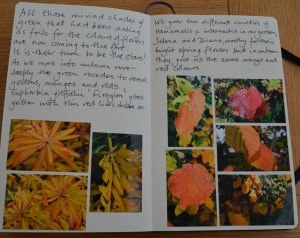 All those myriad shades of
green that had been acting
as foils for the coloured flowers
are now coming to the fore.
It is their turn to be the stars!
As we move into autumn more
deeply the green recedes to reveal
yellows, oranges and reds.
Euphorbia griffithii 'Fireglow' glows
yellow with thin red lines drawn on
We grow two different varieties of
Hamamelis x intermedia in our garden,
Jelena and Diana, mostly for their
bright spring flowers but in autumn
they give us the same orange and
red colours.